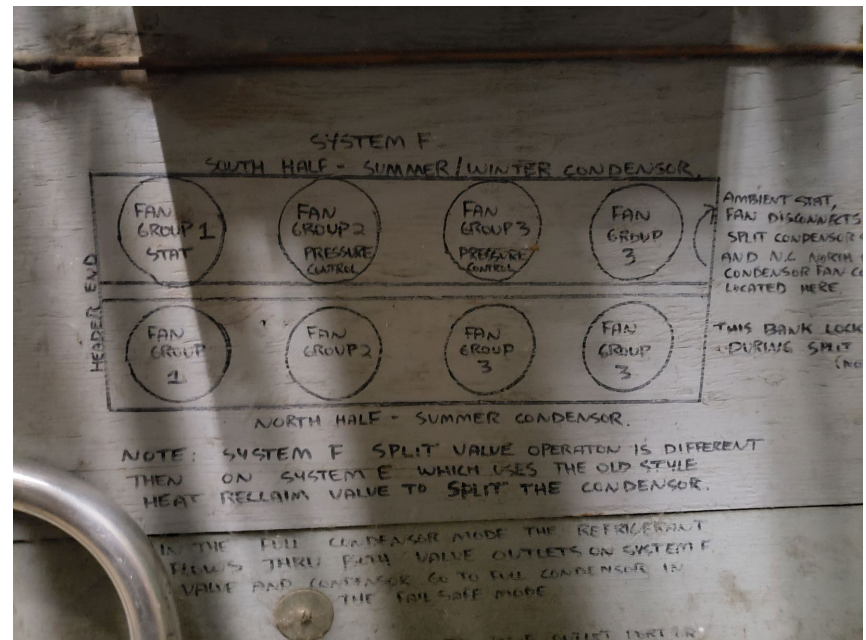 SYSTEM F
SOUTH HALF - SUMMER/WINTER CONDENSOR.
FAN GROUP 1 STAT
FAN GROUP 2 PRESSURE CONTROL
FAN GROUP 3 PRESSURE CONTROL
FAN GROUP 3
AMBIENT STAT,
FAN DISCONNECTS
SPLIT CONDENSOR
AND N.C NORTH
CONDENSOR FAN
LOCATED HERE
HEADER END
FAN GROUP 1
FAN GROUP 2
FAN GROUP 3
FAN GROUP 3
THIS BANK LOCK
DURING SPLIT
NORTH HALF - SUMMER CONDENSOR.
NOTE: SYSTEM F SPLIT VALVE OPERATON IS DIFFERENT
THEN ON SYSTEM E WHICH USES THE OLD STYLE
HEAT RECLAIM VALVE TO SPLIT THE CONDENSOR.
IN THE FULL CONDENSOR MODE THE REFRIGERANT
FLOWS THRU BOTH VALVE OUTLETS ON SYSTEM F.
VALVE AND CONDENSOR GO TO FULL CONDENSOR IN
THE FAILSAFE MODE